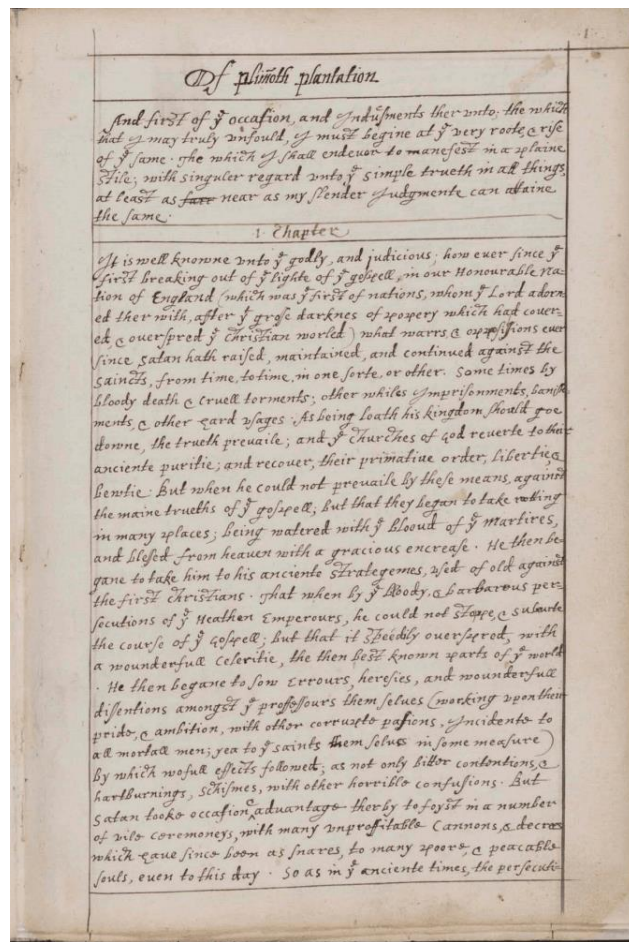 1
Of plimoth plantation
And first of yͤ occasion, and Indusments ther unto; the which
that I may truly unfould, I must begine at yͤ very roote, & rise
of yͤ same. The which I shall endevor to manefest in a plaine
stile; with singuler regard unto yͤ simple trueth in all things,
at least as farr near as my slender Judgmente can attaine
the same.
1. Chapter
It is well knowne unto yͤ godly, and judicious; how ever since yͤ
first breaking out of yͤ lighte of yͤ gospell, in our Honourable Na=
tion of England (which was yͤ first of nations, whom yͤ Lord adorn=
ed ther with, after yͤ grose darknes of popery which had cover=
ed, & overspred yͤ Christian world) what warrs, & oppossitions ever
since Satan hath raised, maintained, and continued against the
saincts, from time, to time, in one sorte, or other. Some times by
bloody death & cruell torments; other whiles Imprisonments, banish=
ments, & other hard usages. As being loath his kingdom should goe
downe, the trueth prevaile; and yͤ Churches of God reverte to their
anciente puritie; and recover, their primative order, libertie, &
bewtie. But when he could not prevaile by these means, against
the maine trueths of yͤ gospell; but that they began to take rotting
in many places; being watered with yͤ bloud of yͤ Martires,
and blesed from heaven with a gracious encrease. He then be=
gane to take him to his anciente strategemes, used of old against
the first Christians. That when by yͤ bloody, & barbarous per=
secutions of yͤ Heathen Emperours, he could not stoppe, & subverte
the course of yͤ Gospell; but that it speedily overspred, with
a wounderfull celeritie, the then best known parts of yͤ world
. He then begane to sow errours, heresies, and wounderfull
disentions amongst yͤ proffessours them selves (working upon their
pride, & ambition, with other corrupte passions, Incidente to
all mortall men; yea to yͤ saints them selves in some measure)
by which wofull effects followed; as not only bitter contentions, &
hartburnings, schismes, with other horrible confusions. But
Satan tooke occasion & advantage therby to foyst in a number
of vile ceremoneys, with many unproffitable Cannons, & decrees
which have since been as snares, to many poore, & peacable
souls, even to this day. So as in yͤ anciente times, the persecuti=